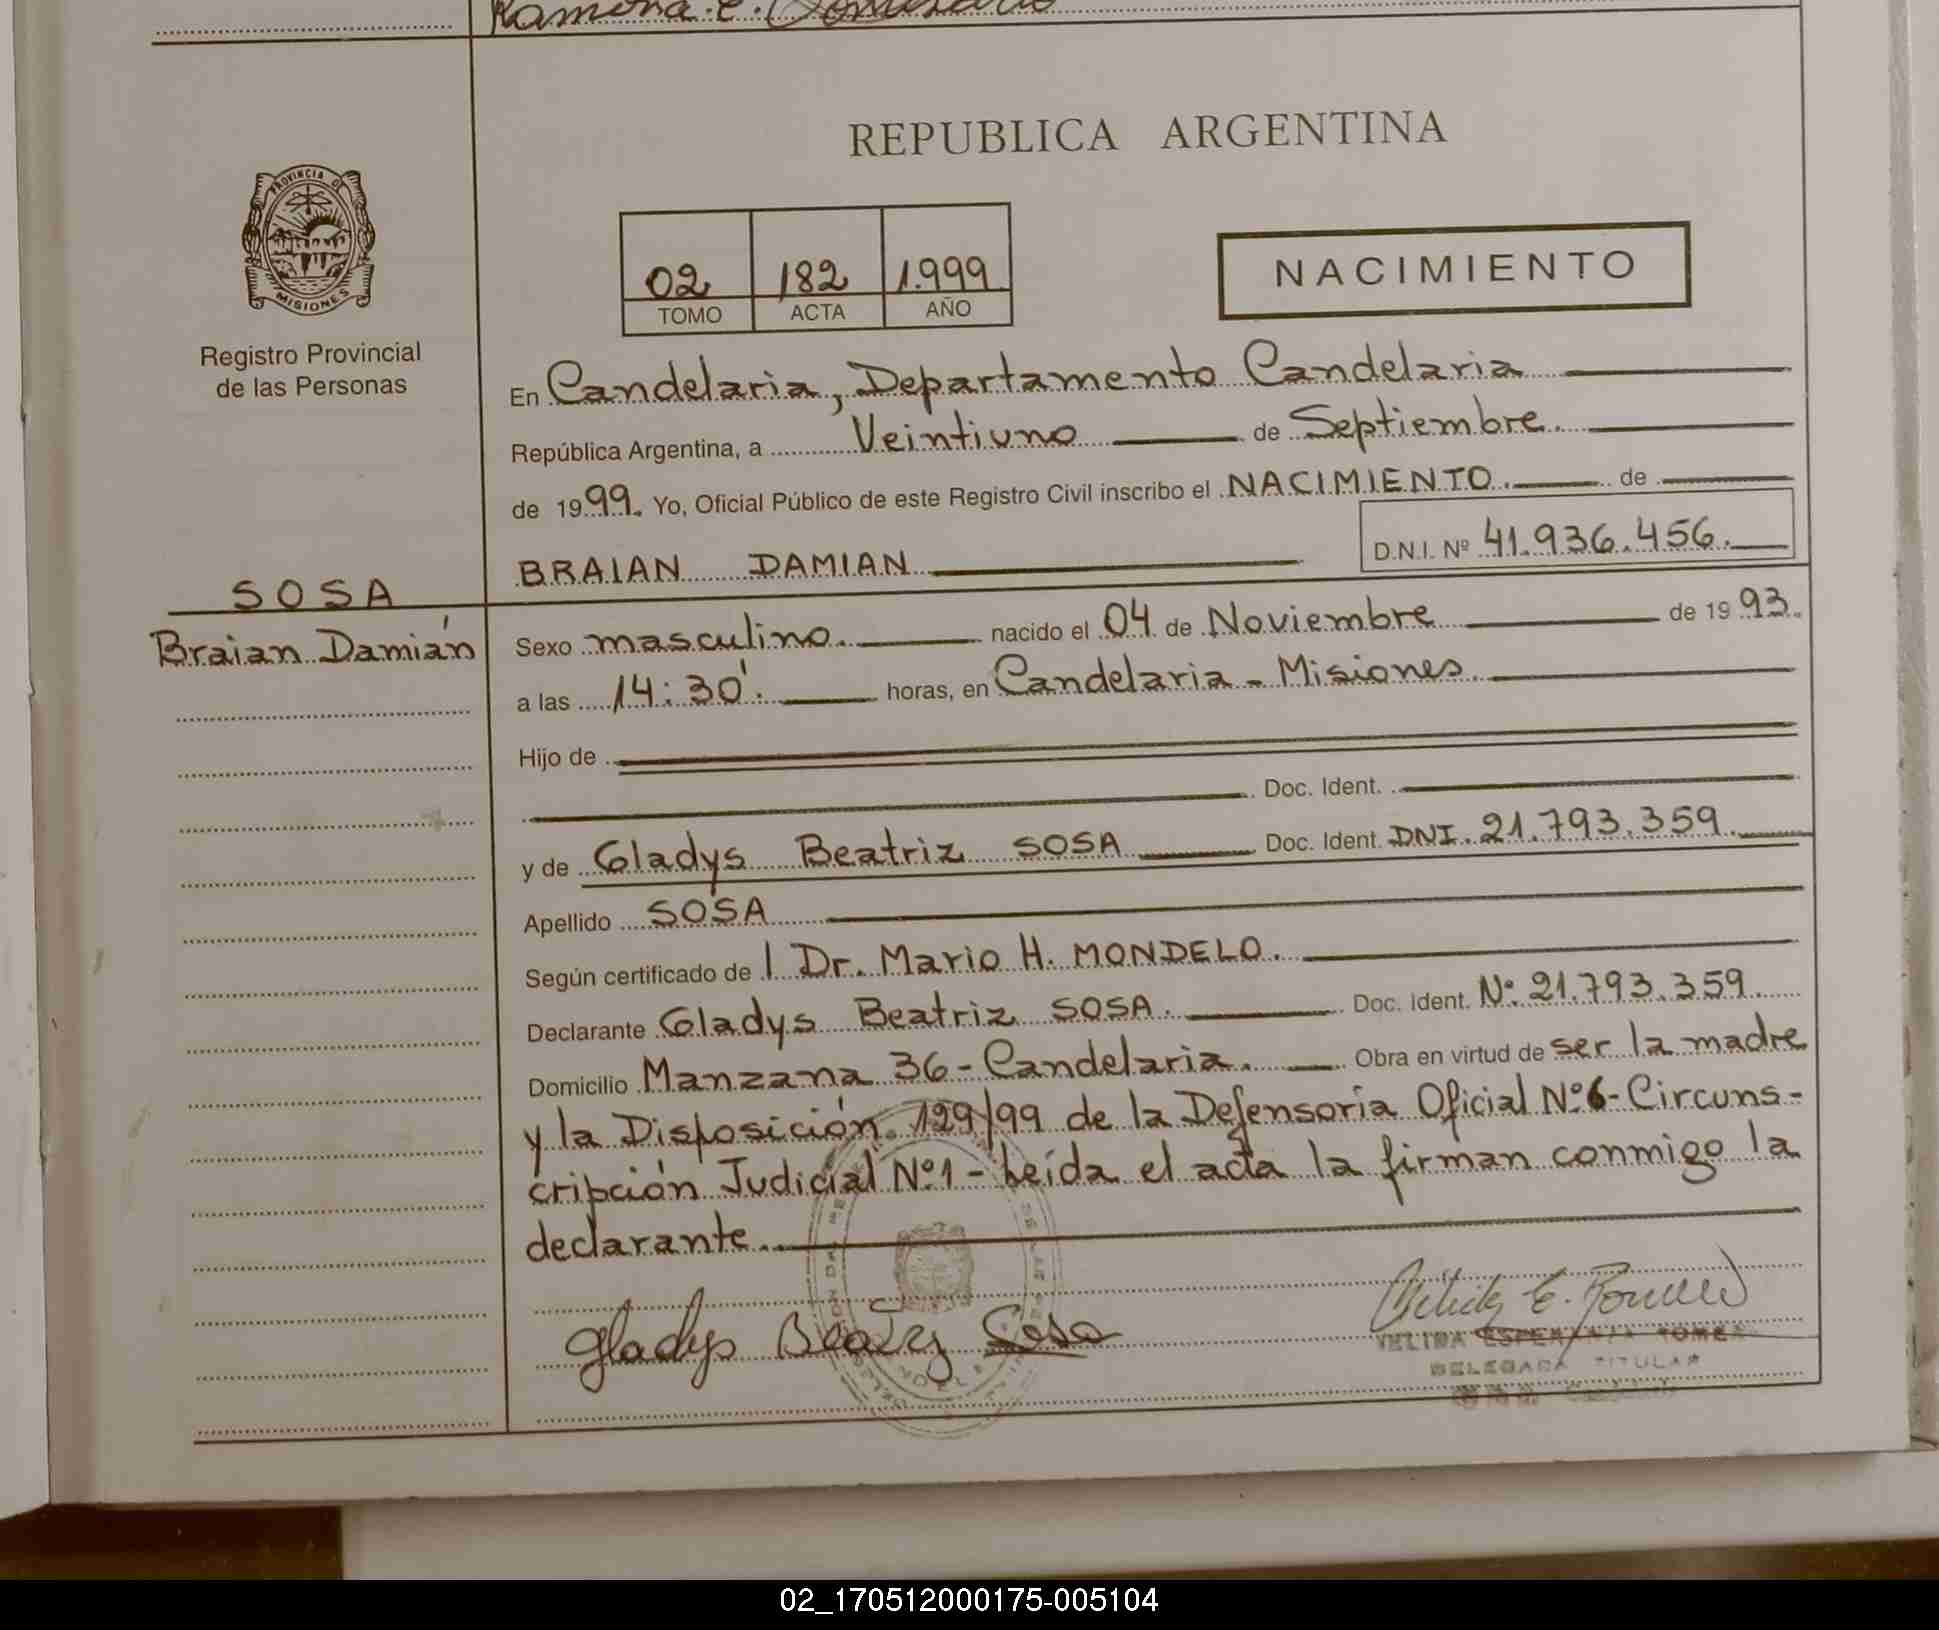 Ramona E.
REPUBLICA ARGENTINA
PROVINCIA DE
MISIONES
Registro Provincial
de las Personas
02 182 1.999
TOMO ACTA AÑO
NACIMIENTO
En Candelaria, Departamento Candelaria
República Argentina, a Veintiuno de Septiembre.
de 1999. Yo, Oficial Público de este Registro Civil inscribo el NACIMIENTO. de
BRAIAN DAMIAN D.N.I. Nº 41.936.456.
SOSA
Braian Damián
Sexo masculino. nacido el 04 de Noviembre de 1993.
a las 14:30'. horas, en Candelaria - Misiones.
Hijo de
Doc. Ident.
y de Gladys Beatriz SOSA Doc. Ident. DNI. 21.793.359.
Apellido SOSA
Según certificado de l Dr. Mario H. MONDELO.
Declarante Gladys Beatriz SOSA. Doc. Ident. Nº 21.793.359
Domicilio Manzana 36 - Candelaria. Obra en virtud de ser la madre
y la Disposición 129/99 de la Defensoría Oficial Nº6 - Circuns-
cripción Judicial Nº1 - Leída el acta la firman conmigo la
declarante.
Gladys Beatriz Sosa
VELIDA ESPERANZA
DELEGADA TITULAR
02_170512000175-005104